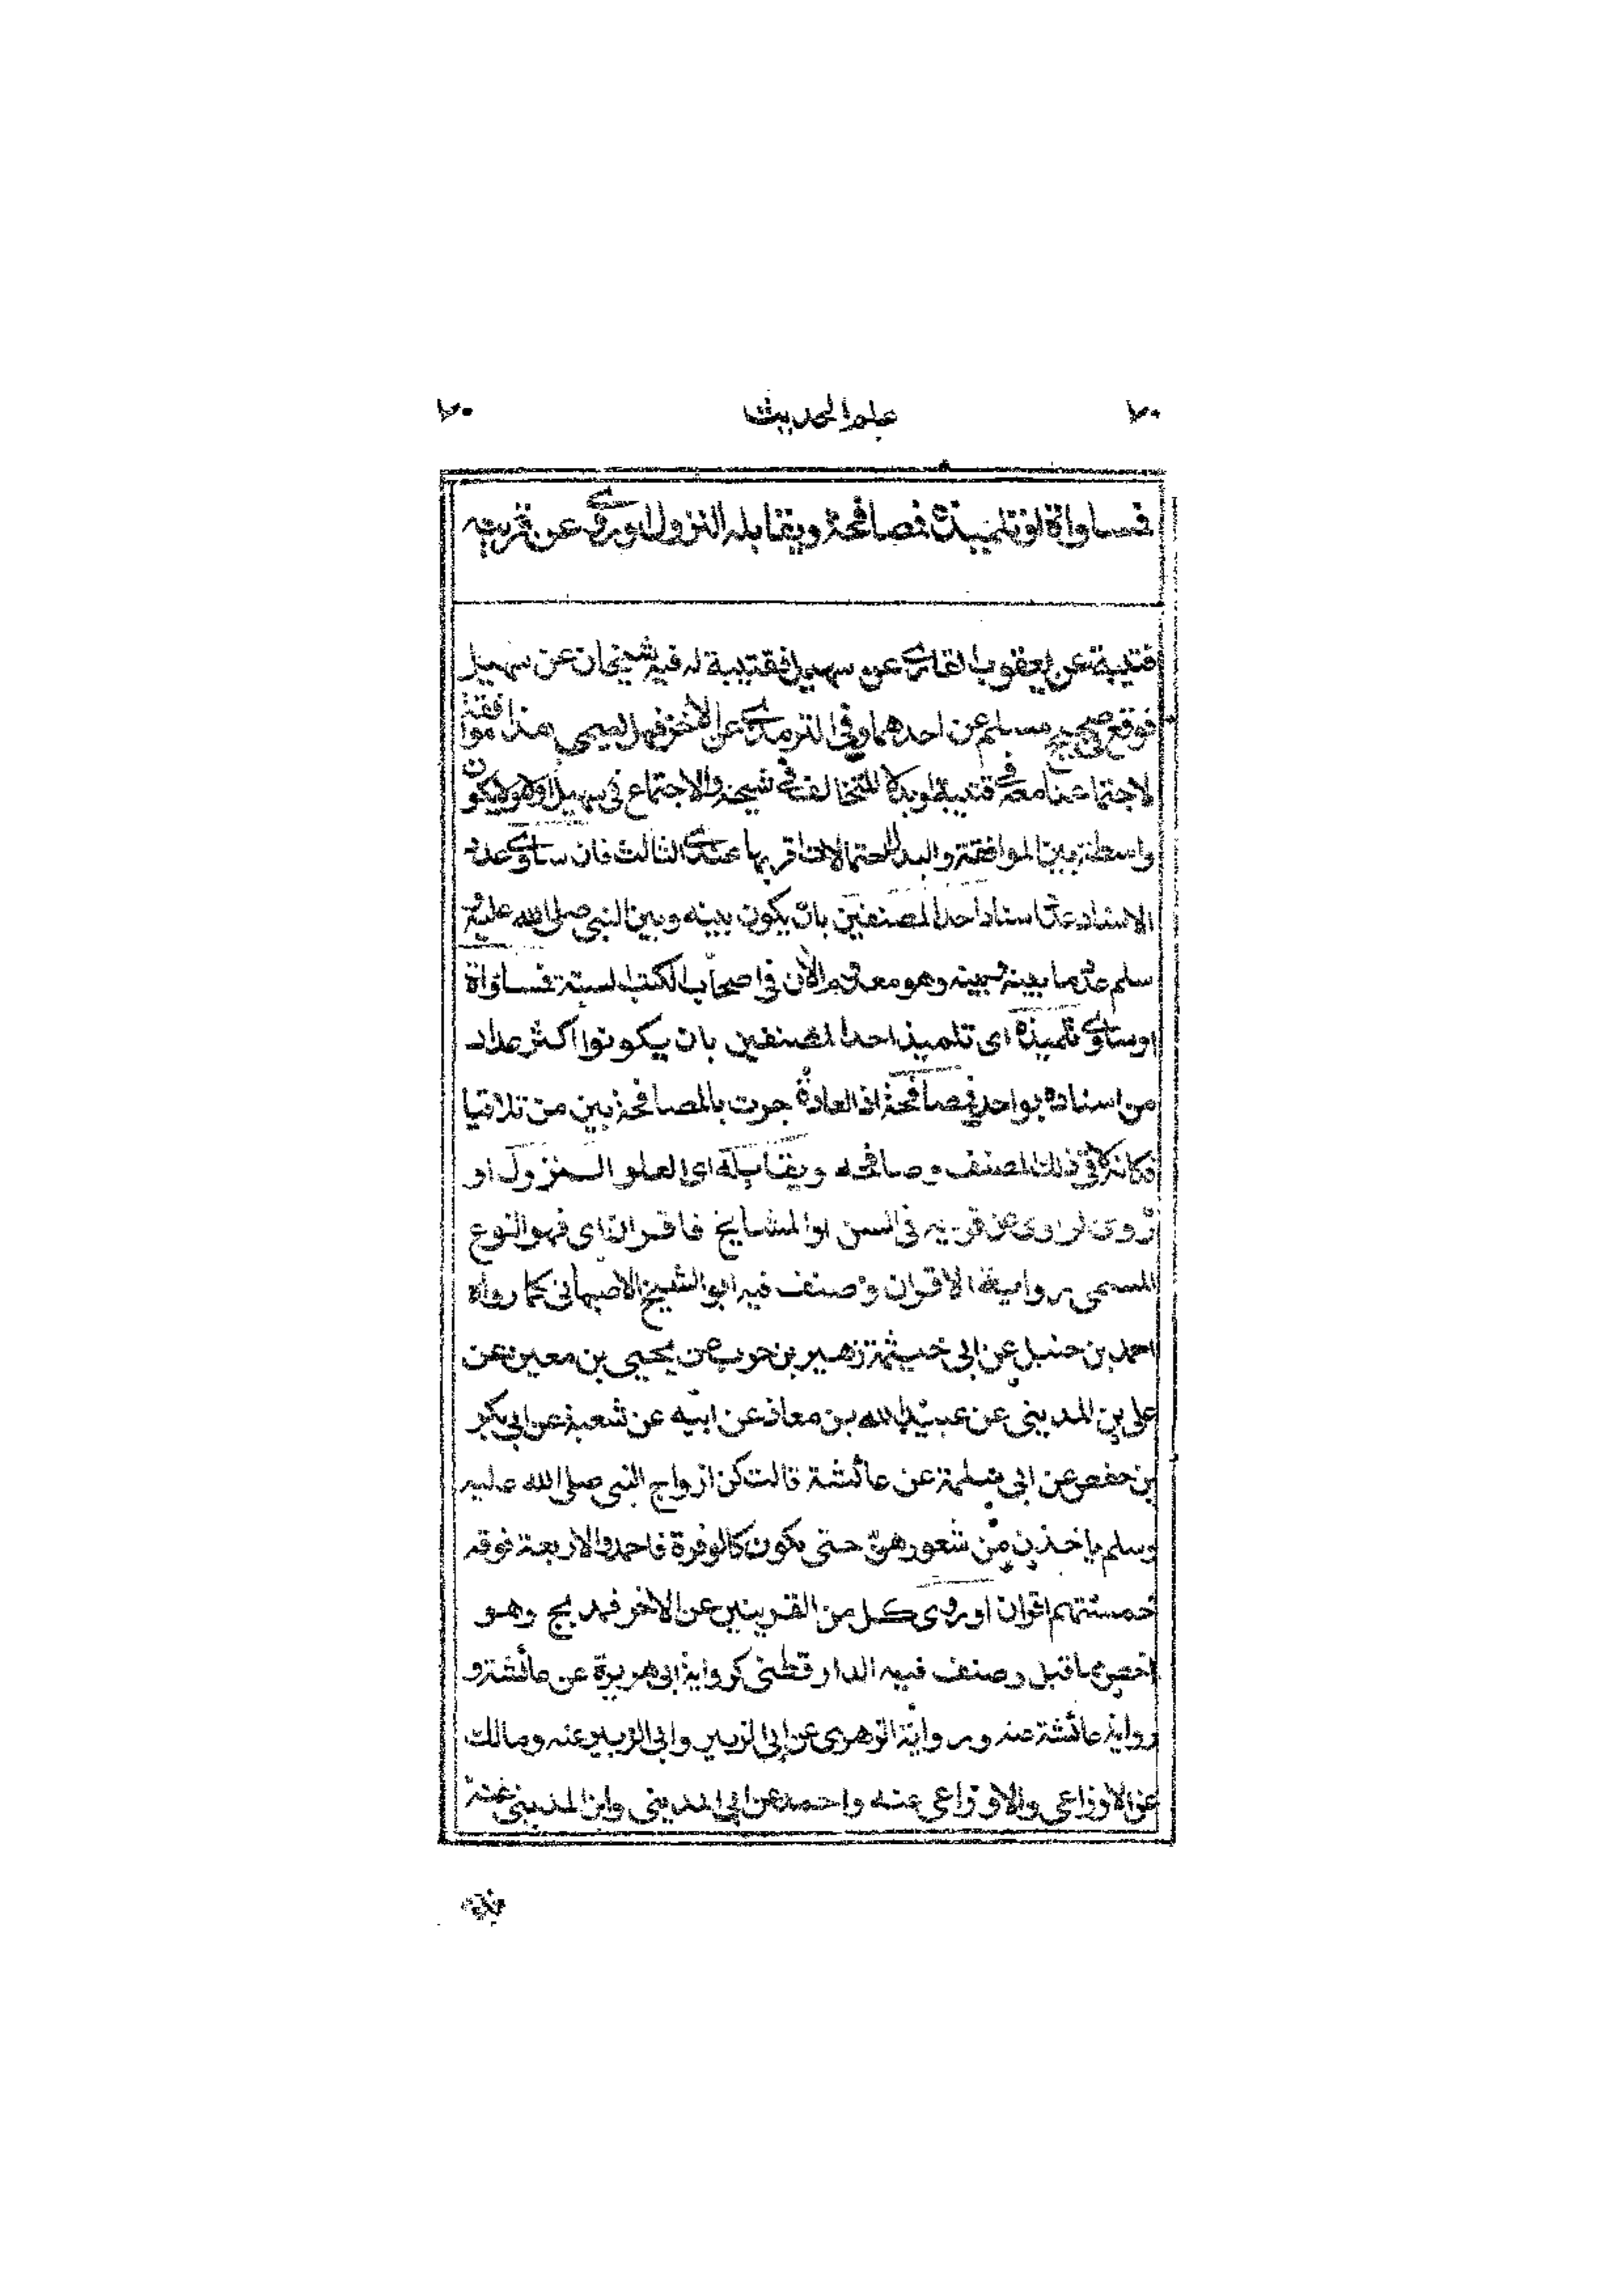 ٧٠ علم الحديث ٧٠
فمساواة او تلميذه فمصافحة ويقابله النزول او روى عن قرينه
قتيبة عن يعقوب القارى عن سهيل فقتيبة له فيه شيخان عن سهيل
فوقع فى صحيح مسلم عن احدهما وفى الترمذى عن الاخر فهل يصح هذا موافقة
لاجتماعنا معه فى قتيبة او بدلا للتخالف فى شيخه والاجتماع فى سهيل اولا ولا يكون
واسطة بين الموافقة والبدل احتمالات اقربها عندى الثالث فان ساوى عدد
الاسناد عدد اسناد احد المصنفين بان يكون بينه وبين النبى صلى الله عليه و
سلم عدد ما بينه وبينه وهو معدوم الآن فى اصحاب الكتب الستة فمساواة
او ساوى تلميذه اى تلميذ احد المصنفين بان يكونوا اكثر عددا
من اسناده بواحد فمصافحة اذ العادة جرت بالمصافحة بين من تلاقيا
فكانه لاقى ذلك المصنف وصافحه ويقابله اى العلو النزول او
روى الراوى عن قرينه فى السن او المشايخ فاقران اى فهو النوع
المسمى برواية الاقران وصنف فيه ابو الشيخ الاصبهانى كما رواه
احمد بن حنبل عن ابى خيثمة زهير بن حرب عن يحيى بن معين عن
على بن المدينى عن عبيد الله بن معاذ عن ابيه عن شعبة عن ابى بكر
بن حفص عن ابى سلمة عن عائشة قالت كن ازواج النبى صلى الله عليه
وسلم ياخذن من شعورهن حتى يكون كالوفرة فاحمد والاربعة فوقه
خمستهم اقران او روى كل من القرينين عن الاخر فمدبج وهو
اخص مما قبل وصنف فيه الدارقطنى كرواية ابى هريرة عن عائشة و
رواية عائشة عنه ورواية الزهرى عن ابى الزبير وابى الزبير عنه ومالك
عن الاوزاعى والاوزاعى عنه واحمد عن ابن المدينى وابن المدينى عنه